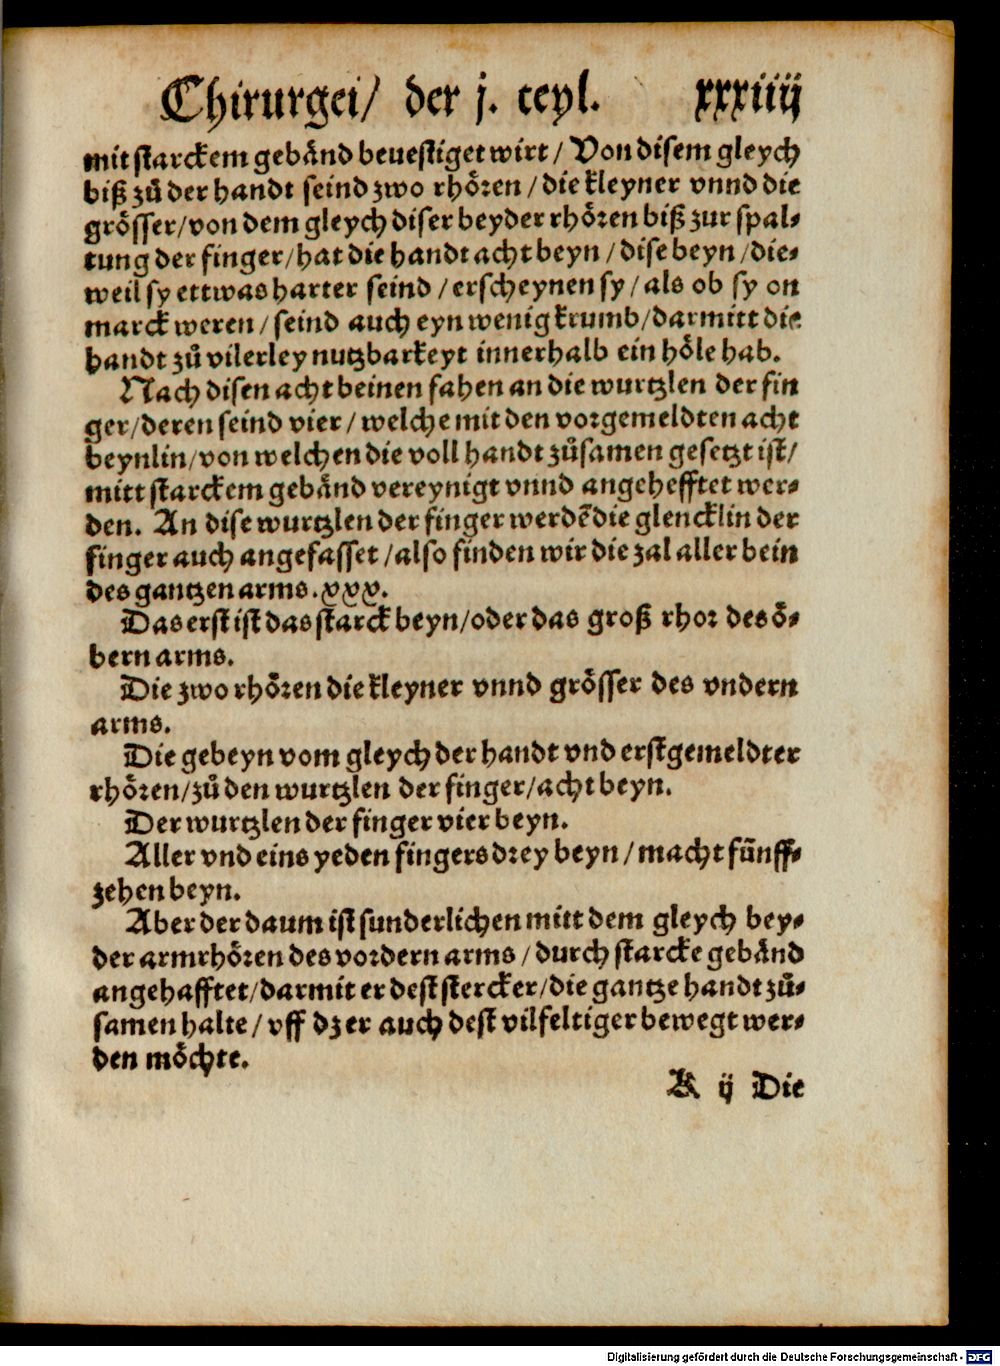 Chirurgei/ der j. teyl. xxxiiij
mit starckem gebånd beuestiget wirt / Von disem gleych
biß zů der handt seind zwo rhören / die kleyner vnnd die
grösser/von dem gleych diser beyder rhören biß zur spal-
tung der finger/hat die handt acht beyn / dise beyn /die-
weil sy ettwas harter seind / erscheynen sy / als ob sy on
marck weren / seind auch eyn wenig krumb/darmitt die
handt zů vilerley nutzbarkeyt innerhalb ein höle hab.
Nach disen acht beinen fahen an die wurtzlen der fin
ger/deren seind vier / welche mit den vorgemeldten acht
beynlin/von welchen die voll handt zůsamen gesetzt ist/
mitt starckem gebånd vereynigt vnnd angehefftet wer-
den. An dise wurtzlen der finger werdẽ die glencklin der
finger auch angefasset /also finden wir die zal aller bein
des gantzen arms.xxx.
Das erst ist das starck beyn/oder das groß rhor des ö-
bern arms.
Die zwo rhören die kleyner vnnd grösser des vndern
arms.
Die gebeyn vom gleych der handt vnd erstgemeldter
rhören/zů den wurtzlen der finger/acht beyn.
Der wurtzlen der finger vier beyn.
Aller vnd eins yeden fingers drey beyn / macht fünff-
zehen beyn.
Aber der daum ist sunderlichen mitt dem gleych bey-
der armrhören des vordern arms / durch starcke gebånd
angehafftet/darmit er dest stercker/die gantze handt zů-
samen halte / vff dz er auch dest vilfeltiger bewegt wer-
den möchte.
K ij Die
Digitalisierung gefördert durch die Deutsche Forschungsgemeinschaft - DFG